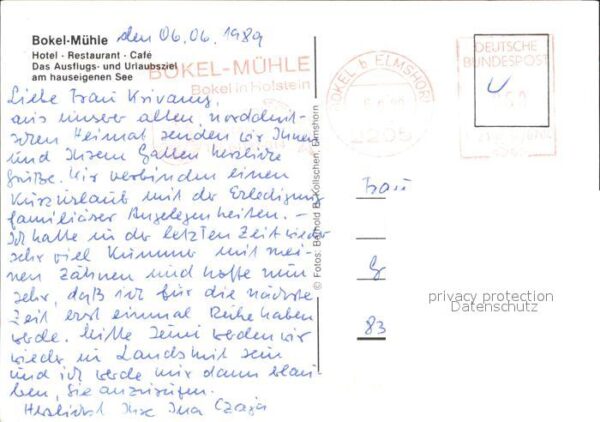 Bokel-Mühle den 06.06.1989
Hotel · Restaurant · Café
Das Ausflugs- und Urlaubsziel
am hauseigenen See
BOKEL-MÜHLE
Bokel in Holstein
BOKEL b ELMSHORN
2205
DEUTSCHE
BUNDESPOST
Liebe Frau
aus unserer alten, norddeut-
schen Heimat senden wir Ihnen
und Ihrem Gatten herzliche
Grüße. Wir verbinden einen
Kurzurlaub mit der Erledigung
familiärer Angelegenheiten. –
Ich hatte in der letzten Zeit wieder
sehr viel Kummer mit mei-
nen Zähnen und hoffe nun
sehr, daß ich für die nächste
Zeit erst einmal Ruhe haben
werde. Mitte Juni werden wir
wieder in Landshut sein
und ich werde mir dann erlau-
ben, Sie anzurufen.
Herzlichst Ihre Ina Czaja
© Fotos: Barthold B. Kollschen, Elmshorn
Frau
83
privacy protection
Datenschutz